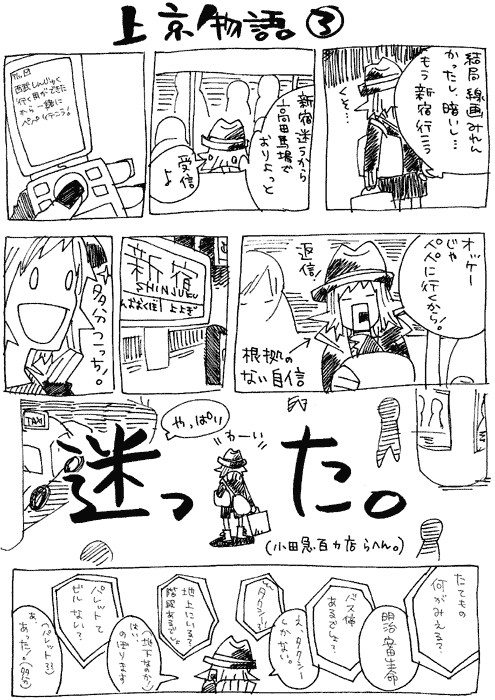 上京物語③
結局 線画みれん
かったし、暗いし…
もう 新宿行こう
くそ…
新宿迷うから
高田馬場で
おりよっと
受信
よ
西武しんじゅく
行く用ができた
から一緒に
ペペ行こう。
オッケー
じゃ
ペペに行くから。
返信
根拠の
ない自信
新宿
SHINJUKU
しんおおくぼ よよぎ
多分こっち!
やっぱり
わーい
迷った。
TAXI
(小田急百カ店らへん。)
たてもの
何がみえる?
明治安田生命
バス停
あるでしょ?
え、タクシー
しかない。
タクシー!!
地上にいる?
階段あるでしょ
(地下なのか)
はい、
のぼります
パレットて
ビルない?
あ、(ペレット??)
あった!(多分)